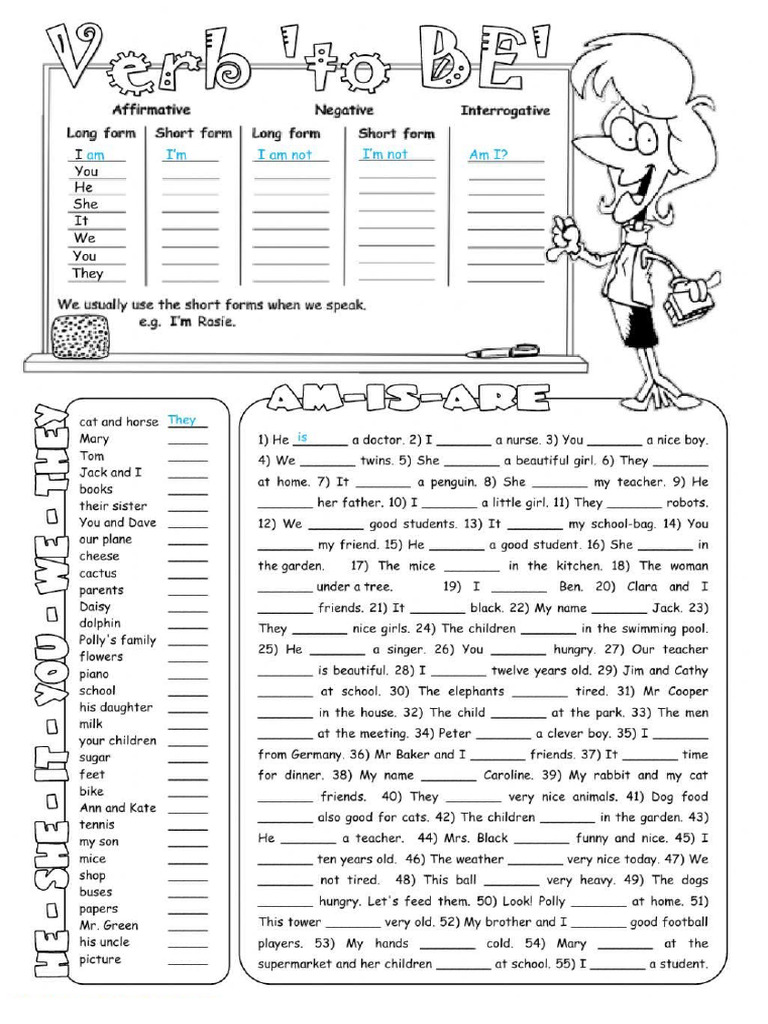 Verb 'to BE'
Affirmative Negative Interrogative
Long form Short form Long form Short form
I am I'm I am not I'm not Am I?
You
He
She
It
We
You
They
We usually use the short forms when we speak.
e.g. I'm Rosie.
HE - SHE - IT - YOU - WE - THEY
cat and horse They
Mary
Tom
Jack and I
books
their sister
You and Dave
our plane
cheese
cactus
parents
Daisy
dolphin
Polly's family
flowers
piano
school
his daughter
milk
your children
sugar
feet
bike
Ann and Kate
tennis
my son
mice
shop
buses
papers
Mr. Green
his uncle
picture
AM-IS-ARE
1) He is a doctor. 2) I ________ a nurse. 3) You ________ a nice boy.
4) We ________ twins. 5) She ________ a beautiful girl. 6) They ________
at home. 7) It ________ a penguin. 8) She ________ my teacher. 9) He
________ her father. 10) I ________ a little girl. 11) They ________ robots.
12) We ________ good students. 13) It ________ my school-bag. 14) You
________ my friend. 15) He ________ a good student. 16) She ________ in
the garden. 17) The mice ________ in the kitchen. 18) The woman
________ under a tree. 19) I ________ Ben. 20) Clara and I
________ friends. 21) It ________ black. 22) My name ________ Jack. 23)
They ________ nice girls. 24) The children ________ in the swimming pool.
25) He ________ a singer. 26) You ________ hungry. 27) Our teacher
________ is beautiful. 28) I ________ twelve years old. 29) Jim and Cathy
________ at school. 30) The elephants ________ tired. 31) Mr Cooper
________ in the house. 32) The child ________ at the park. 33) The men
________ at the meeting. 34) Peter ________ a clever boy. 35) I ________
from Germany. 36) Mr Baker and I ________ friends. 37) It ________ time
for dinner. 38) My name ________ Caroline. 39) My rabbit and my cat
________ friends. 40) They ________ very nice animals. 41) Dog food
________ also good for cats. 42) The children ________ in the garden. 43)
He ________ a teacher. 44) Mrs. Black ________ funny and nice. 45) I
________ ten years old. 46) The weather ________ very nice today. 47) We
________ not tired. 48) This ball ________ very heavy. 49) The dogs
________ hungry. Let's feed them. 50) Look! Polly ________ at home. 51)
This tower ________ very old. 52) My brother and I ________ good football
players. 53) My hands ________ cold. 54) Mary ________ at the
supermarket and her children ________ at school. 55) I ________ a student.